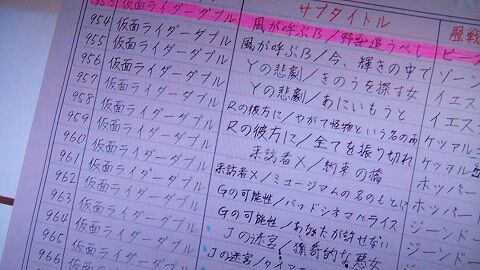 サブタイトル
953 仮面ライダーダブル 風が呼ぶB/野獣追うべし ビースト
954 仮面ライダーダブル 風が呼ぶB/今、輝きの中で ゾーン
955 仮面ライダーダブル Yの悲劇/きのうを探す女 イエス
956 仮面ライダーダブル Yの悲劇/あにいもうと イエス
957 仮面ライダーダブル Rの彼方に/やがて怪物という名の雨
958 仮面ライダーダブル Rの彼方に/全てを振り切れ ケツァル
959 仮面ライダーダブル 来訪者X/約束の橋 ケツァル
960 仮面ライダーダブル 来訪者X/ミュージアムの名のもとに ホッパー
961 仮面ライダーダブル Gの可能性/バッドシネマパラダイス ホッパー
962 仮面ライダーダブル Gの可能性/あなたが許せない ジーン
963 仮面ライダーダブル Jの迷宮/猟奇的な悪女 ジーンド
964 仮面ライダーダブル Jの迷宮/ダイア
965 仮面ライダーダブル
966